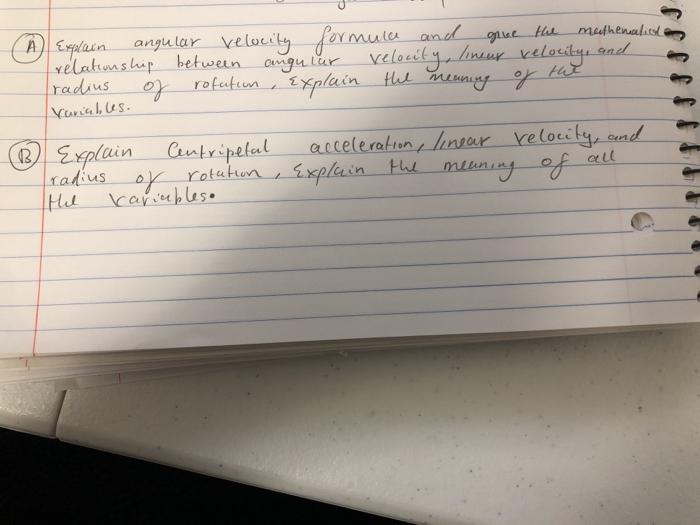 A Explain angular velocity formula and give the mathematical
relationship between angular velocity, linear velocity, and
radius of rotation, Explain the meaning of the
variables.
B Explain Centripetal acceleration, linear velocity, and
radius of rotation, Explain the meaning of all
the variables.